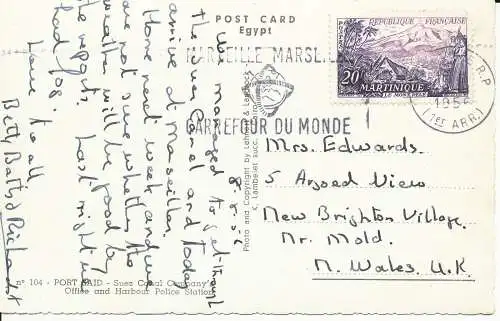 POST CARD
Egypt
MARSEILLE
CARREFOUR DU MONDE
POSTES
REPUBLIQUE FRANÇAISE
20F
MARTINIQUE
R.P.
195
(1er ARR.)
8.8.56
We managed to get through
the Suez Canal and today
arrive at Marseilles.
Home next week and we
are not sure whether the
weather will be good by
the reports. Last night we
had fog.
Love to all
Betty
Mrs. Edwards.
5 View
New Brighton Village.
Nr. Mold.
N. Wales. U.K.
Photo and Copyright by Lehnert & Landrock
K. Lambelet succ.
n° 104 - PORT SAID - Suez Canal Company's
Office and Harbour Police Station